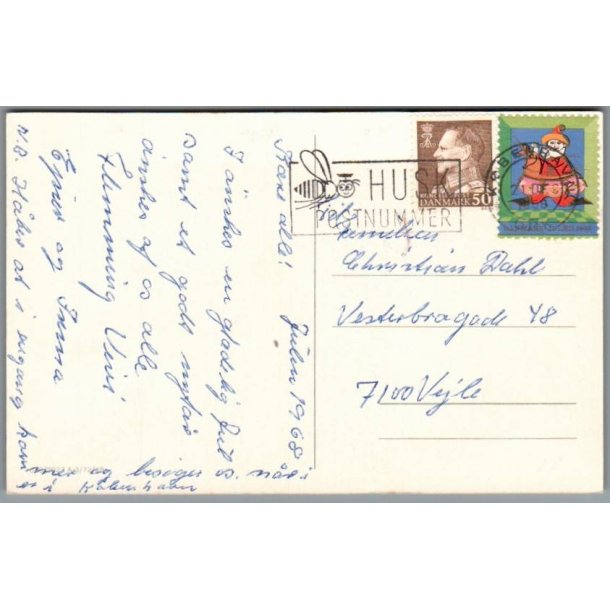 Julen 1968
Kære alle!
I ønskes en glædelig Jul
samt et godt nytår
ønskes af os alle
Flemming Vivi
og Irma
N.B. Håber at i engang kom
mer og besøger os. når i
er i København
HUSK
POSTNUMMER
DANMARK 50
KØBENHAVN
Familien
Christian Dahl
Vesterbrogade 48
7100 Vejle